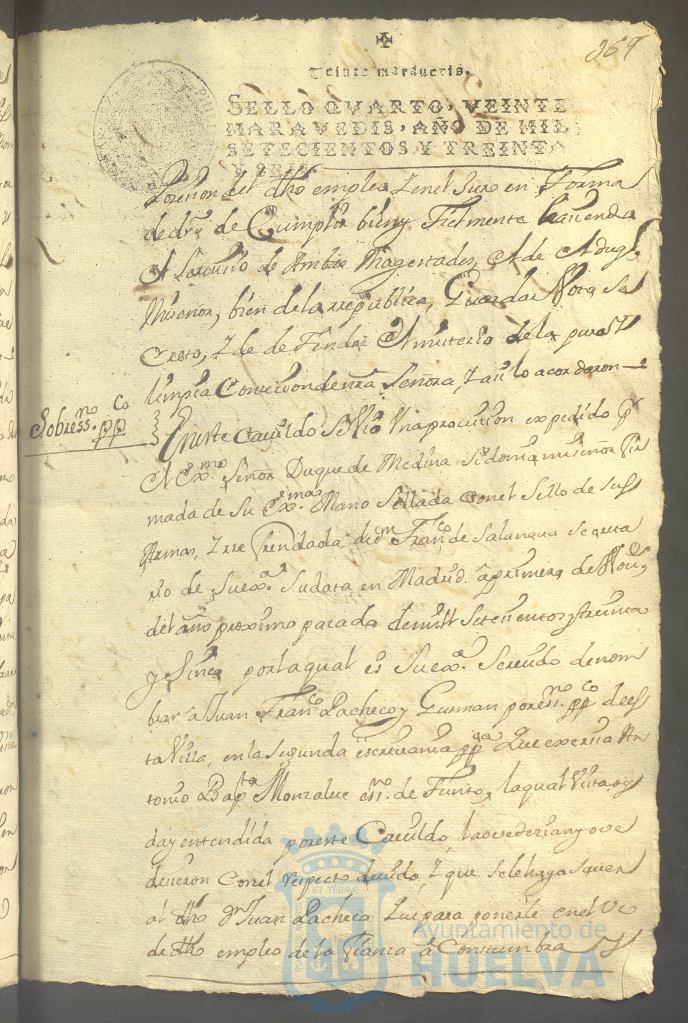 367
Veinte maravedis.
SELLO QVARTO, VEINTE
MARAVEDIS, AÑO DE MIL
SETECIENTOS Y TREINTA
Y SEIS
Posesion del dho empleo y en el Juro en forma
de dro de Cumplir bien y fielmente haciendo
el servicio de Ambas Magestades, el de el Duque
Miseñor, bien de la rrepublica, Guardar Voto se
Creto, y de defender el Misterio de la pura y
limpia Concepcion de nra Señora, y asi lo acordaron
Sobre ssno. pp co
En este Cavildo se Vio Una provision expedida pr
el Exmo Señor Duque de Medina Sidonia mi señor fir
mada de su Exma Mano Sellada con el Sello de sus
Armas, y rrefrendada de dn Franco de Salanoua Secreta
rio de su exa. su data en Madrid a primero de Nove
del año proximo pasado de mill Setecientos y treinta
y Sinco por la qual es Su exa. Servido de nom
brar a Juan Franco Pacheco y Gusman por esno. ppco de es
ta Villa, en la segunda escrivania ppca que exersia An
tonio Bapta Monzalve essno. de funto, la qual Vista oy
da y entendida por este Cavildo, la ovedesian y ove
desieron con el respecto devido, y que se le haga saver
al dho dn Juan Pacheco, que para ponerle en el Uso
de dho empleo de la fianca a Costumbra
Ayuntamiento de
HUELVA